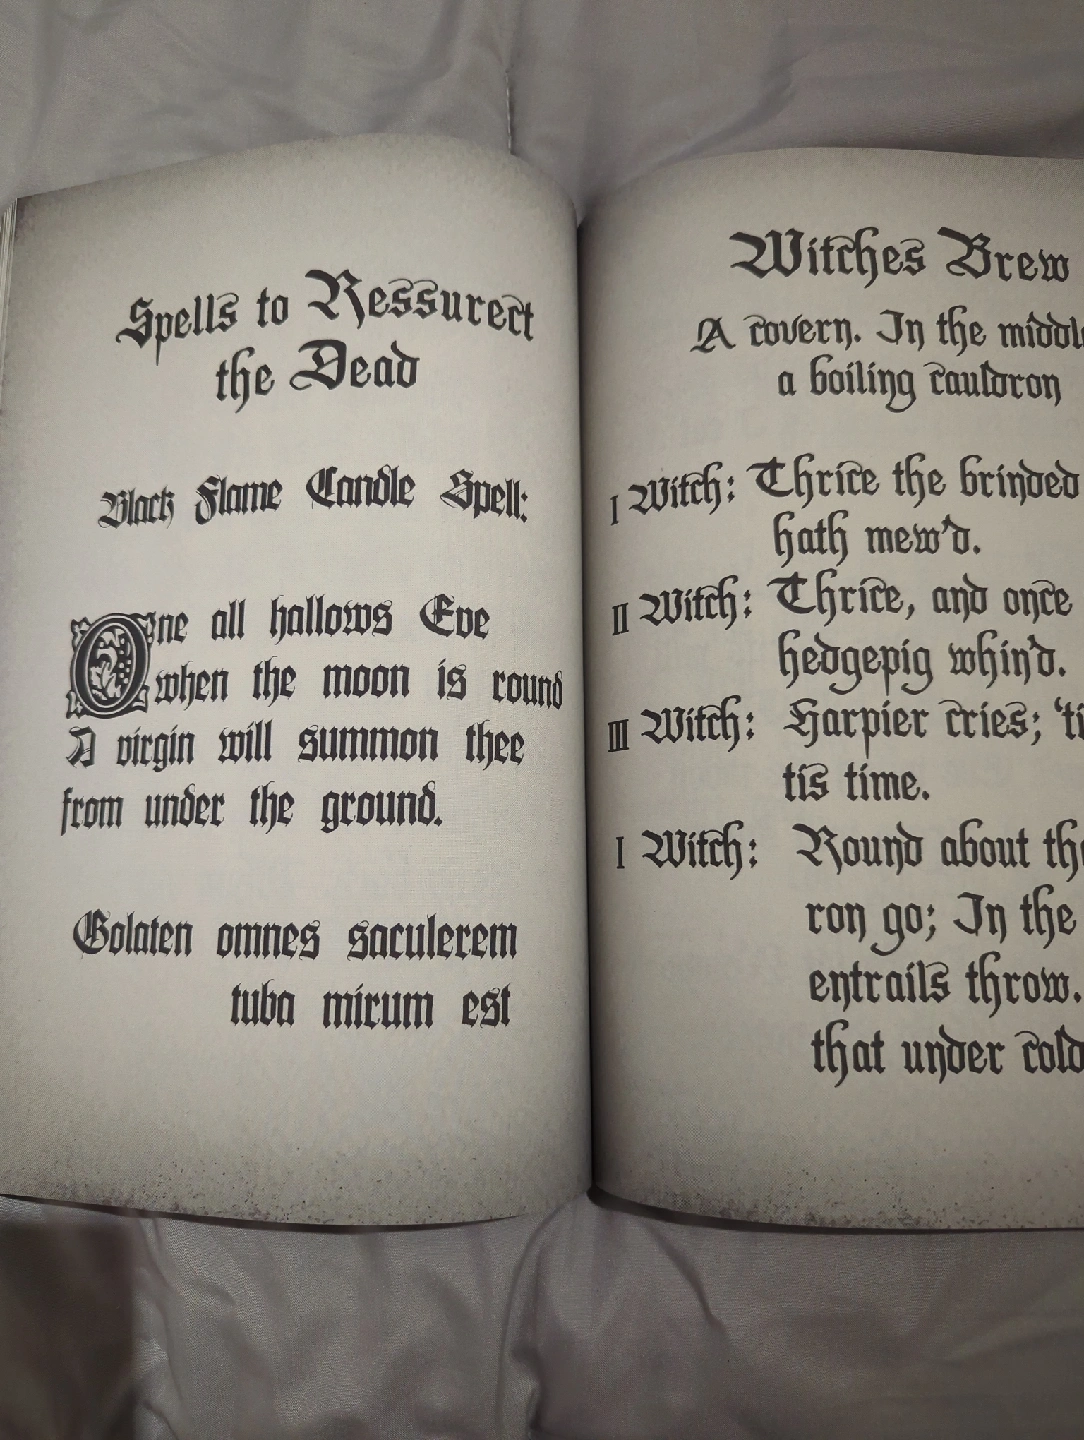 Spells to Ressurect
the Dead
Black Flame Candle Spell:
One all hallows Eve
when the moon is round
A virgin will summon thee
from under the ground.
Golaten omnes saculerem
tuba mirum est
Witches Brew
A covern. In the
a boiling cauldron
I Witch: Thrice the brinded
hath mew'd.
II Witch: Thrice, and once
hedgepig whin'd.
III Witch: Harpier cries;
tis time.
I Witch: Round about
ron go; In the
entrails throw.
that under